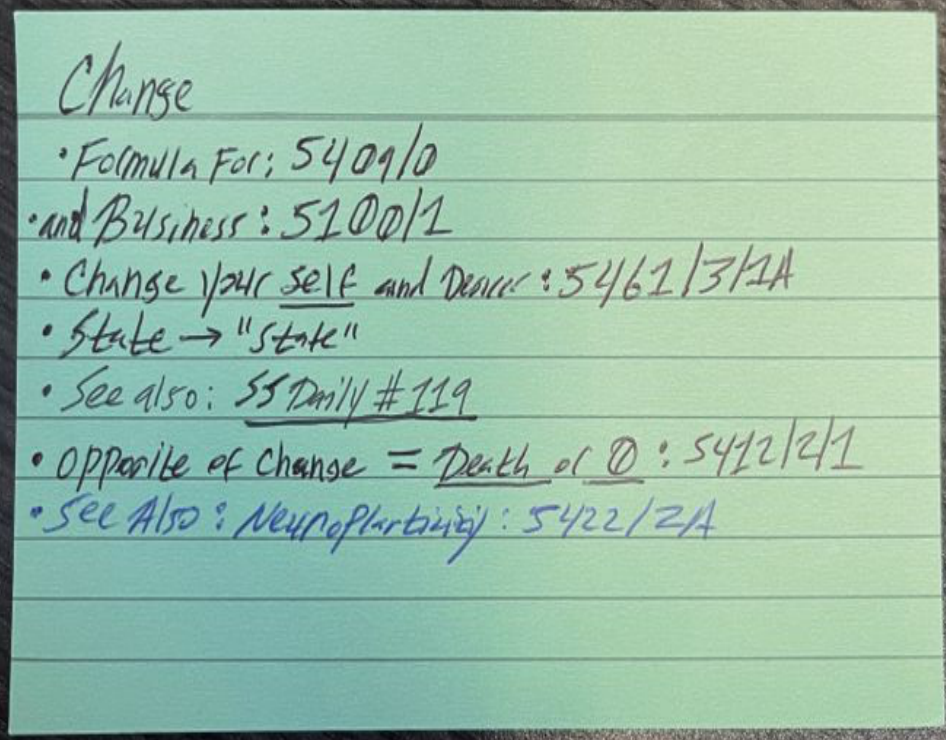 Change
• Formula For: 5409/0
• and Business: 5100/1
• Change your self and : 5461/3/1A
• State → "State"
• See also: SS Daily #119
• Opposite of Change = Death or 0: 5412/2/1
• See Also: Neuroplasticity: 5422/2A